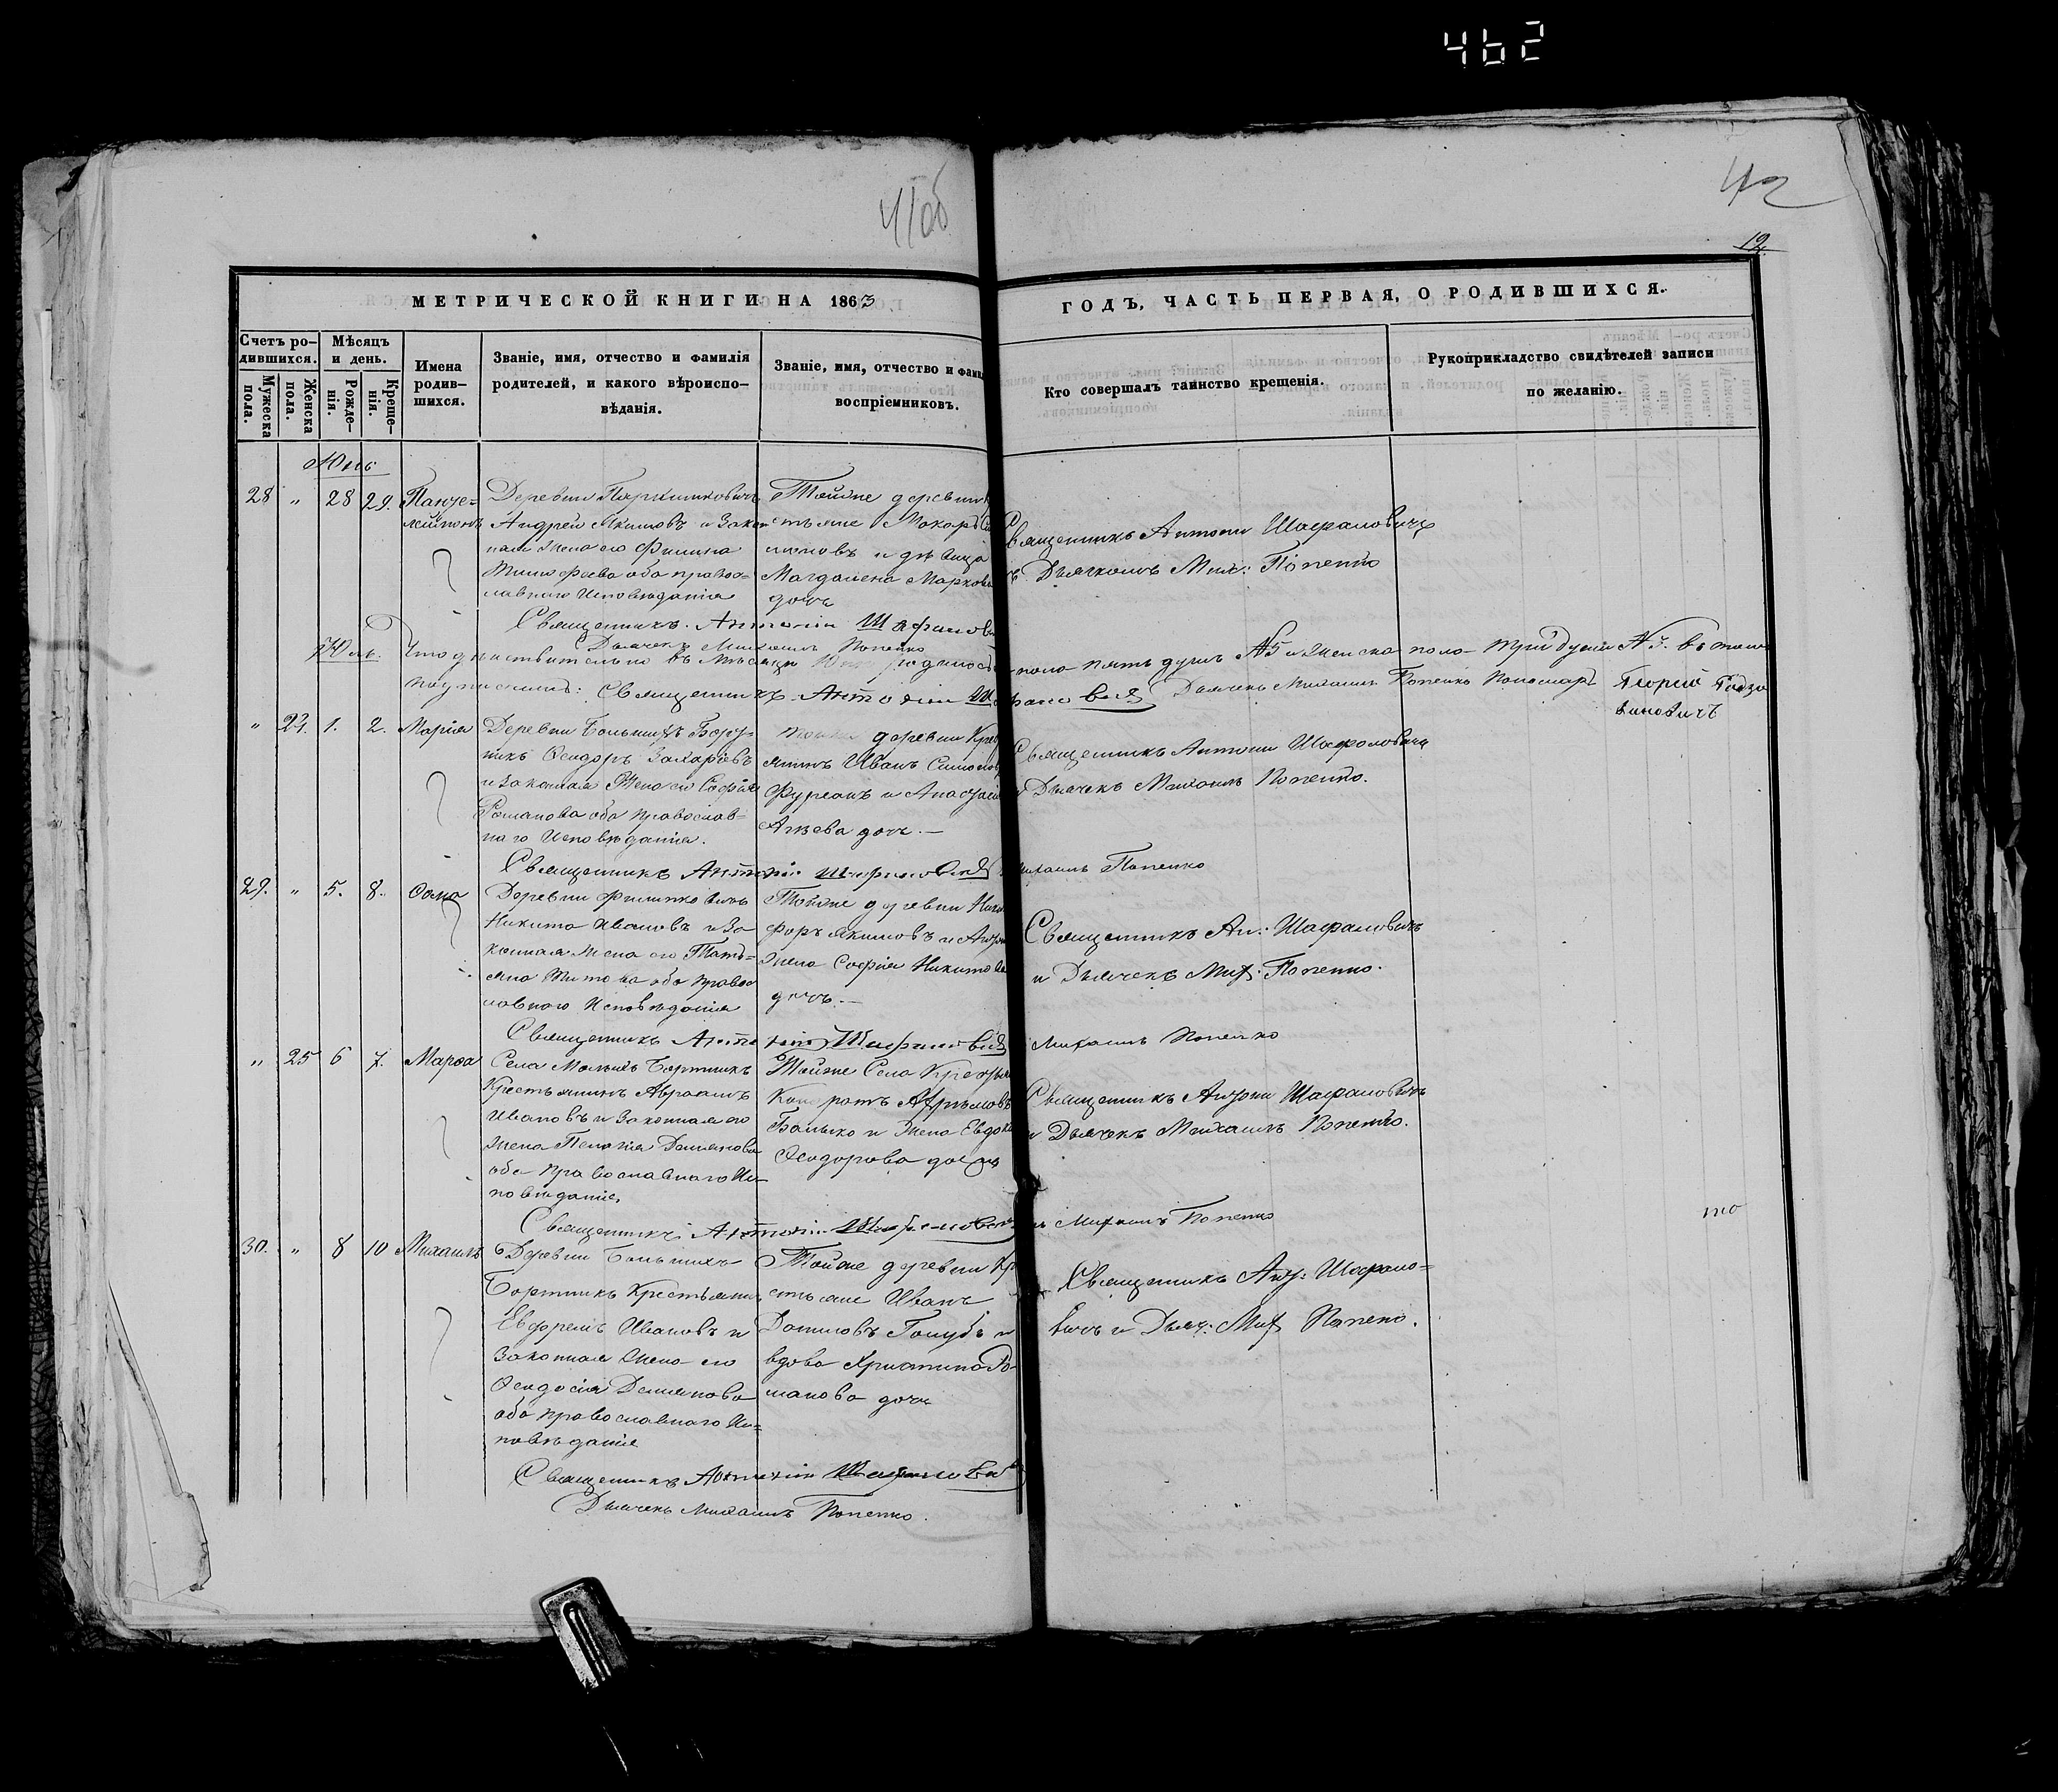 462
41об
42
12
МЕТРИЧЕСКОЙ КНИГИ НА 1863
ГОДЪ, ЧАСТЬ ПЕРВАЯ, О РОДИВШИХСЯ.
Счетъ ро-
дившихся.
Мужеска пола.
Женска пола.
Мѣсяцъ и день.
Рожде-
нія.
Креще-
нія.
Имена
родив-
шихся.
Званіе, имя, отчество и фамилія
родителей, и какого вѣроиспо-
вѣданія.
Званіе, имя, отчество и фами
воспріемниковъ.
Кто совершалъ таинство крещенія.
Рукоприкладство свидѣтелей записи
по желанію.
28 " 28 29.
Деревни
Андрей Якимовъ и Закон
ная жена его
Тимофеева оба правос-
лавного Исповѣданія
Тойже деревни
стьяне Макаръ
и дѣвица
Магдалена Маркова
дочь
Священникъ Антоній Шафановичъ
Дьячкомъ Мих: Попенко
Священникъ Антоній Шафанови
Дьячекъ Михаилъ Попенко
Юль.
Что дѣйствительно въ мѣсяцѣ
пола пять душъ №5 и женска пола три души №3. въ томъ
подписались: Священникъ Антоній Шафановичъ Дьячекъ Михаилъ Попенко Пономарь Георгій
" 24 1. 2. Марія
Деревни Большихъ Борт-
никъ Феодоръ Захаровъ
и Законная Жена его Софія
Романова оба православ-
наго Исповѣданія.
деревни Крес
янинъ Иванъ
и Анастасія
дочь.
Священникъ Антоній Шафановичъ
и Дьячекъ Михаилъ Попенко.
Священникъ Антоній Шафановичъ Михаилъ Попенко
29. " 5. 8. Фома
Деревни Филипковичъ
Никита Ивановъ и За
конная жена его Тать-
яна Титова оба правос
лавного Исповѣданія
Тойже деревни Ники
форъ Якимовъ и
жена Софія Никитова
дочь.
Священникъ Ан: Шафановичъ
и Дьячекъ Мих: Попенко.
Священникъ Антоній Шафановичъ Михаилъ Попенко
" 25 6 7. Марфа
Села Малыхъ Бортникъ
Крестьянинъ Авраамъ
Ивановъ и Законная его
жена Пелагія Демянова
оба православнаго Ис-
повѣданія
Тойже Села Крестья
Бамько и жена Евдокія
Феодорова дочь
Священникъ Антоній Шафановичъ
и Дьячекъ Михаилъ Попенко.
Священникъ Антоній Шафановичъ Михаилъ Попенко
30. " 8 10 Михаилъ
Деревни Большихъ
Бортникъ Крестьянинъ
Евфремъ Ивановъ и
Законная жена его
Феодосія Демянова
оба православного Ис-
повѣданія
Тойже деревни Кр
стьяне Иванъ
Голубъ и
вдова Христина Ро-
манова дочь
Священникъ Ант: Шафано-
вичъ и Дьяч: Мих Попенко.
Священникъ Антоній Шафановичъ
Дьячекъ Михаилъ Попенко.